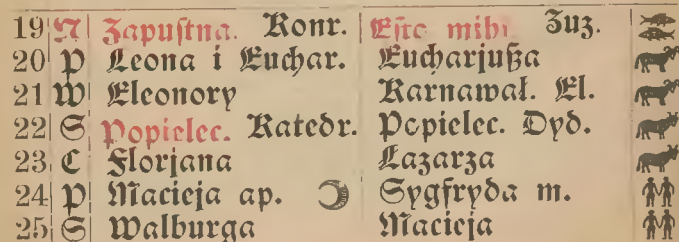 19 N Zapuſtna. Konr. Eſto mihi Zuz.
20 P Leona i Euchar. Eucharjußa
21 W Eleonory Karnawał. El.
22 S Popielec. Katedr. Popielec. Dyd.
23 C Florjana Lazarza
24 P Macieja ap. Sygfryda m.
25 S Walburga Macieja